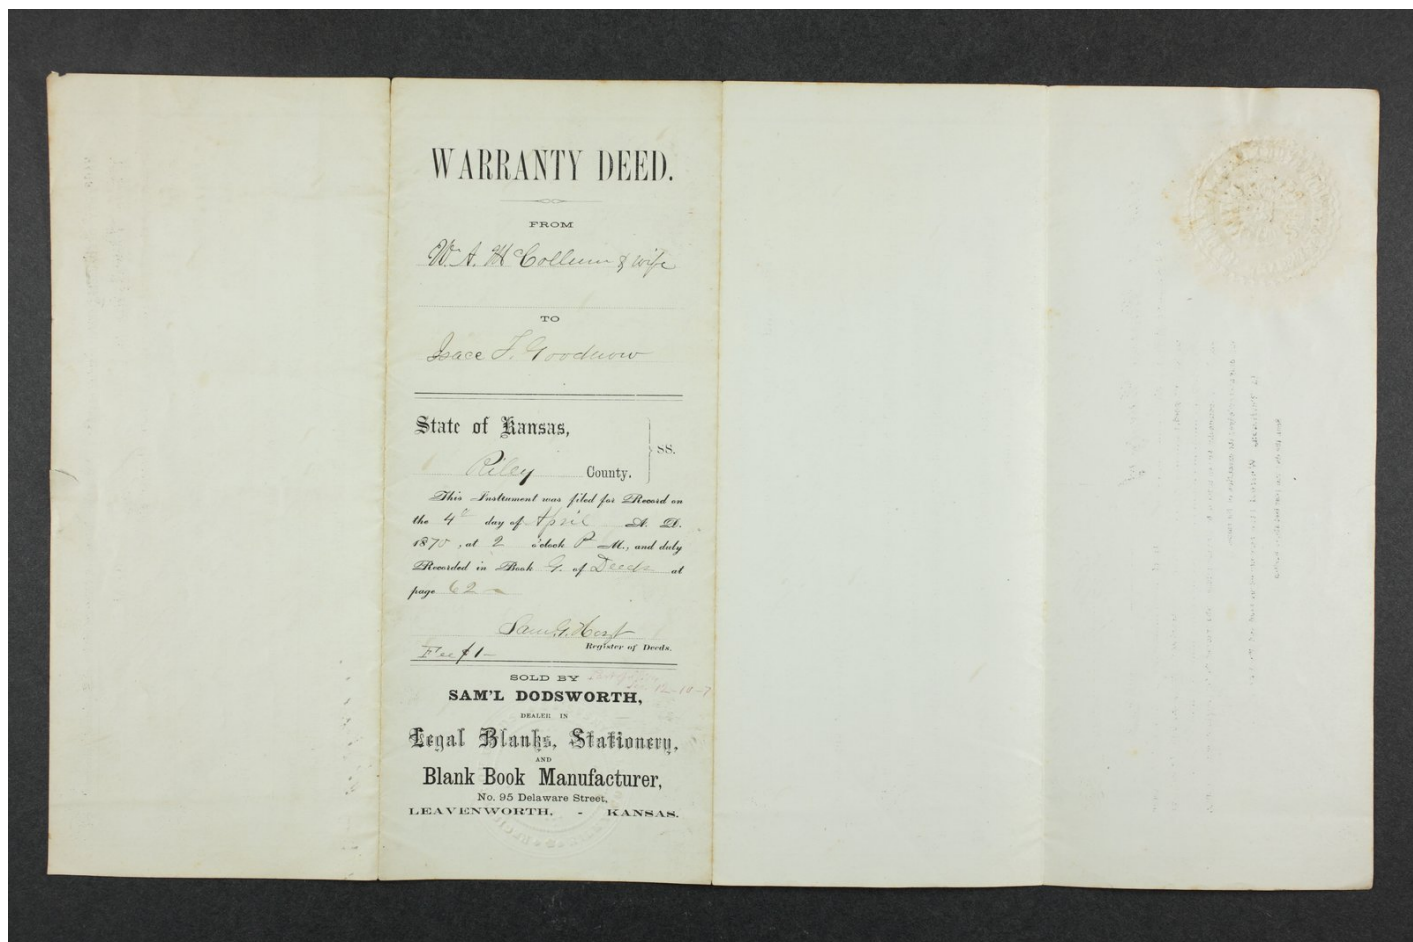 WARRANTY DEED.
FROM
W. A. McCollum & wife
TO
Isaac T. Goodnow
State of Kansas,
Riley County. } SS.
This Instrument was filed for Record on
the 4th day of April A. D.
1870, at 2 o'clock P M., and duly
Recorded in Book G. of Deeds at
page 62
Sam. G. Hoyt
Register of Deeds.
Fee $1-
SOLD BY
SAM'L DODSWORTH,
DEALER IN
Legal Blanks, Stationery,
AND
Blank Book Manufacturer,
No. 95 Delaware Street,
LEAVENWORTH, - KANSAS.